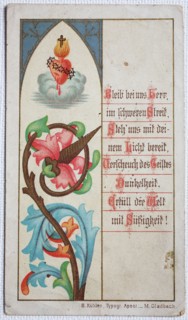 Bleib bei uns Herr,
im schweren Streit,
Steh' uns mit dei-
nem Licht bereit,
Verscheuch des Geistes
Dunkelheit.
Erfüll der Welt
mit Süßigkeit!
B. Kühlen, Typogr. Apost. – M. Gladbach.